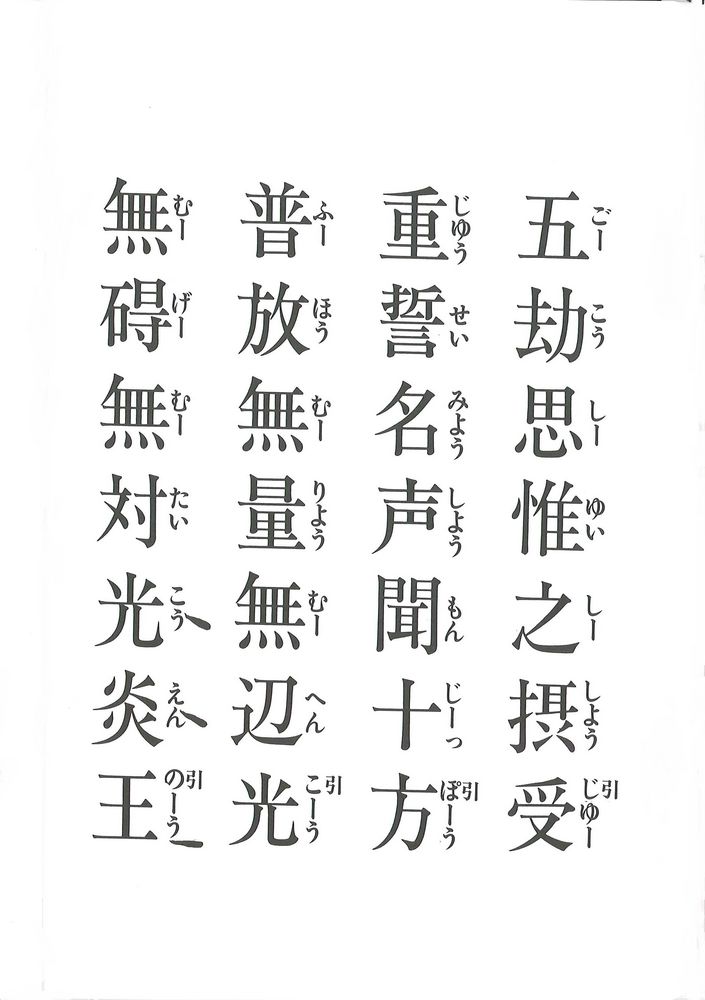 五劫思惟之摂受
ごーこうしーゆいしーしようじゆー引
重誓名声聞十方
じゆうせいみようしようもんじーっぽーう引
普放無量無辺光
ふーほうむーりようむーへんこーう引
無碍無対光炎王
むーげーむーたいこうえんのーう引